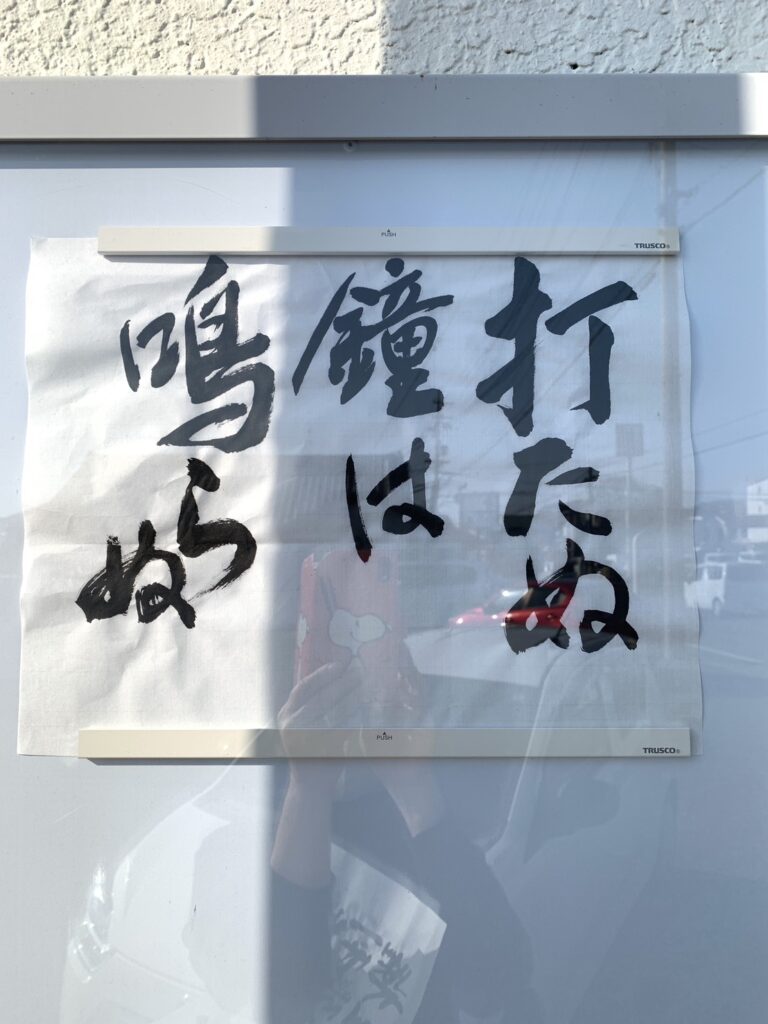 PUSH
TRUSCO®
打たぬ
鐘は
鳴らぬ
PUSH
TRUSCO®